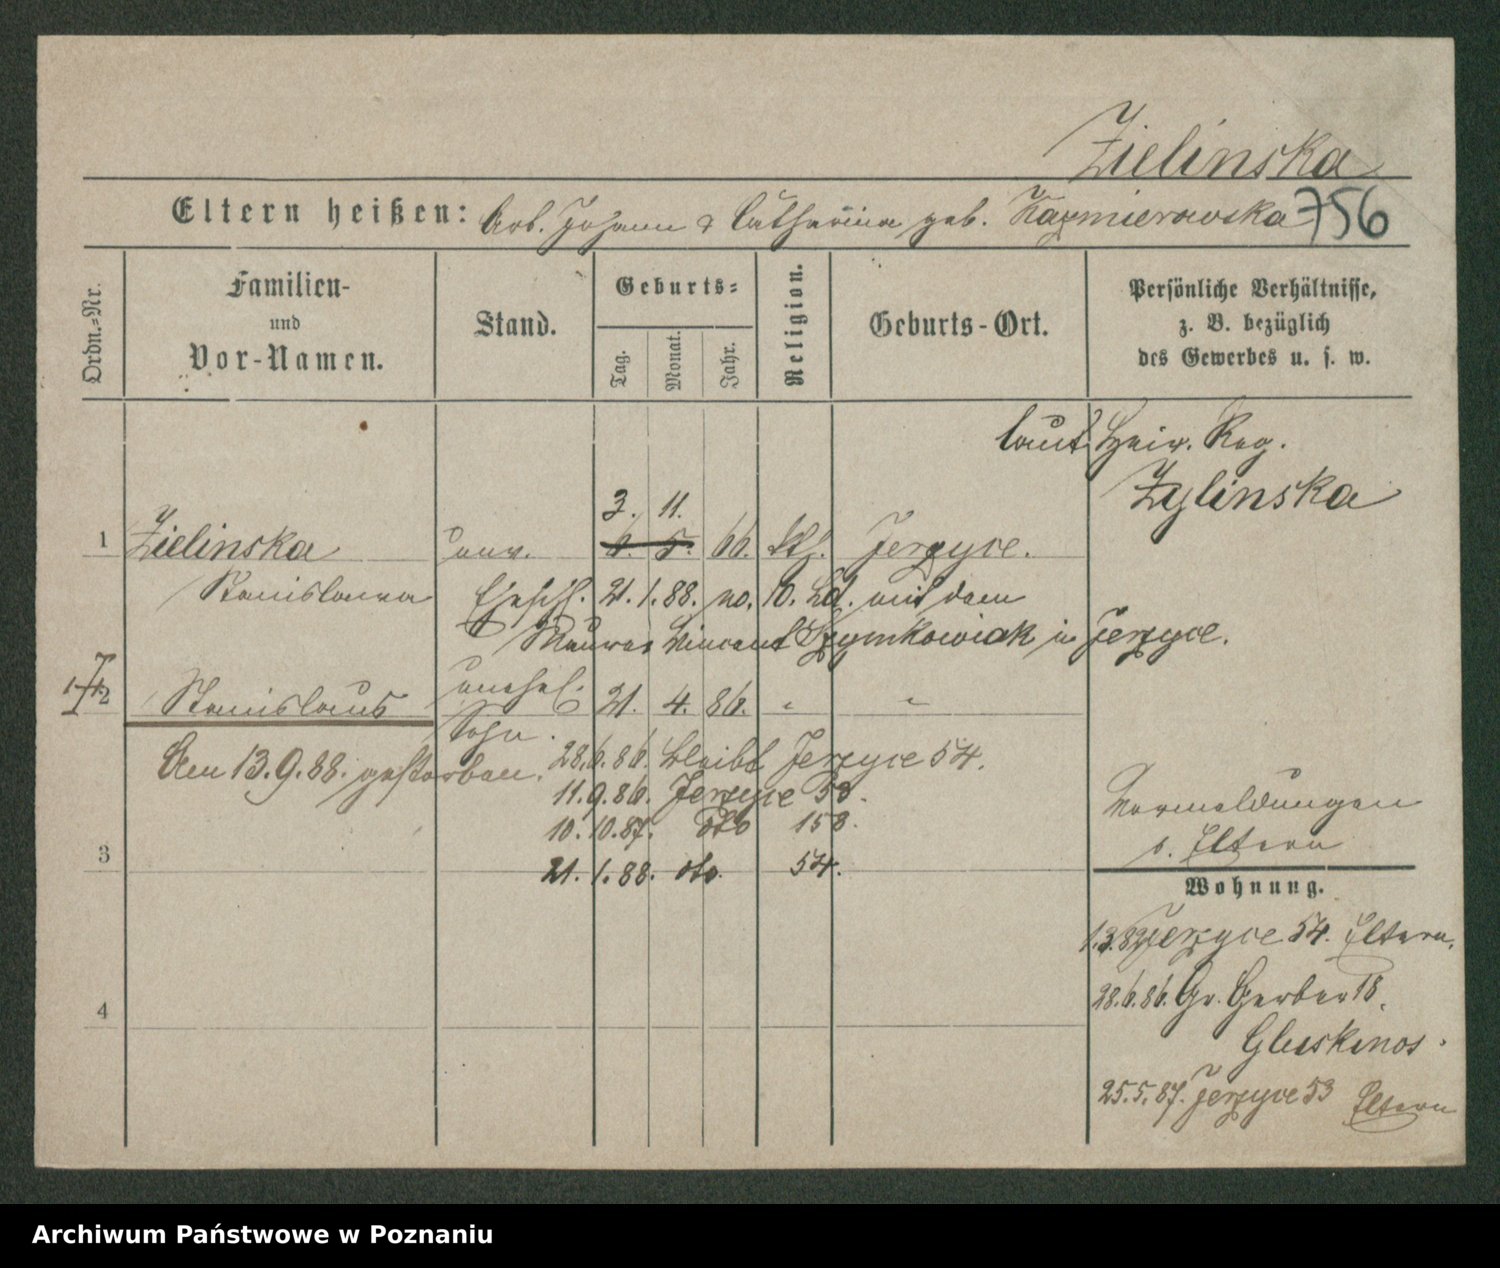 Zielinska
Eltern heißen: Arb. Johann & Catharina geb. Kazmierowska 756
Ordn.-Nr.
Familien- und Vor-Namen.
Stand.
Geburts-
Tag.
Monat.
Jahr.
Religion.
Geburts-Ort.
Persönliche Verhältnisse,
z. B. bezüglich
des Gewerbes u. s. w.
laut Heir. Reg.
Zylinska
3. 11.
1 Zielinska unv. 6. 5. 66. kth. Jerzyce.
Stanislawa Ehesch. 21. 1. 88. no. 10. mit dem
Maurer Vincent Szymkowiak in Jerzyce.
Stanislaus unehel. 21. 4. 86. " "
Sohn.
Am 13.9.88. gestorben.
28.6.86. bleibt Jerzyce 54.
11.9.86. Jerzyce 53.
10.10.87. dto 158.
3
21.1.88. dto. 54.
Vermeldungen
s. Eltern
Wohnung.
1.3.82 Jerzyce 54. Eltern.
28.6.86. Gr. Gerber 18.
4
Gluskinos.
25.5.87. Jerzyce 53 Eltern